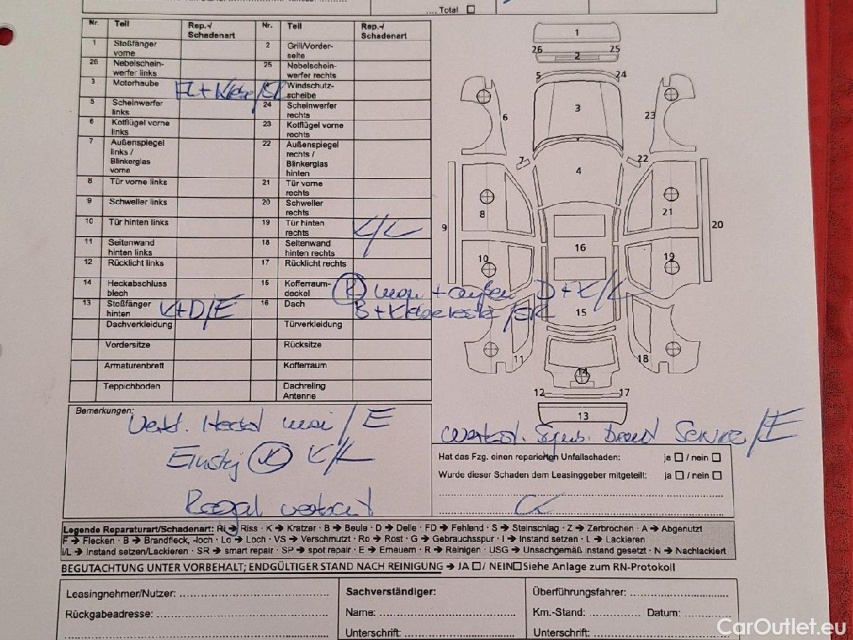 Total
Nr. Teil Rep.-/ Schadenart Nr. Teil Rep.-/ Schadenart
1 Stoßfänger vorne 2 Grill/Vorder- seite
26 Nebelschein- werfer links 25 Nebelschein- werfer rechts
3 Motorhaube Windschutz- scheibe
5 Scheinwerfer links 24 Scheinwerfer rechts
6 Kotflügel vorne links 23 Kotflügel vorne rechts
7 Außenspiegel links / Blinkerglas vorne 22 Außenspiegel rechts / Blinkerglas hinten
8 Tür vorne links 21 Tür vorne rechts
9 Schweller links 20 Schweller rechts
10 Tür hinten links 19 Tür hinten rechts K/L
11 Seitenwand hinten links 18 Seitenwand hinten rechts
12 Rücklicht links 17 Rücklicht rechts
14 Heckabschluss blech 15 Kofferraum- deckel K + außen D+K/L
13 Stoßfänger hinten K+D/E 16 Dach
Dachverkleidung Türverkleidung
Vordersitze Rücksitze
Armaturenbrett Kofferraum
Teppichboden Dachreling Antenne
1
26 25
2
5 24
3
6 23
7 22
4
8 21
9 20
16
10 19
15
11 18
14
12 17
13
Bemerkungen:
/ E
K K/L
Service/E
Hat das Fzg. einen reparierten Unfallschaden: ja / nein
Wurde dieser Schaden dem Leasinggeber mitgeteilt: ja / nein
Legende Reparaturart/Schadenart: Ri → Riss · K → Kratzer · B → Beule · D → Delle · FD → Fehlend · S → Steinschlag · Z → Zerbrochen · A → Abgenutzt
F → Flecken · B → Brandfleck, -loch · Lo → Loch · VS → Verschmutzt · Ro → Rost · G → Gebrauchsspur · I → Instand setzen · L → Lackieren
I/L → Instand setzen/Lackieren · SR → smart repair · SP → spot repair · E → Erneuern · R → Reinigen · USG → Unsachgemäß instand gesetzt · N → Nachlackiert
BEGUTACHTUNG UNTER VORBEHALT; ENDGÜLTIGER STAND NACH REINIGUNG → JA / NEIN Siehe Anlage zum RN-Protokoll
Leasingnehmer/Nutzer: Sachverständiger: Überführungsfahrer:
Rückgabeadresse: Name: Km.-Stand: Datum:
Unterschrift: Unterschrift:
CarOutlet.eu